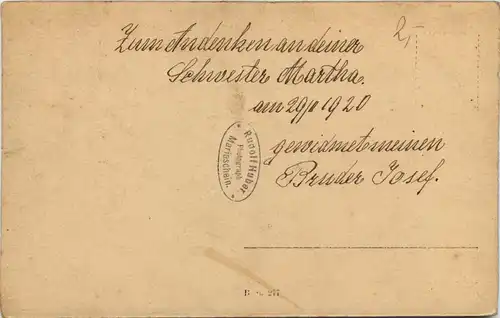 2,-
Zum Andenken an deiner
Schwester Martha.
am 29/ 1920
gewidmet meinen
Bruder Josef.
* Rudolf Huber *
Photograph
Mariaschein.